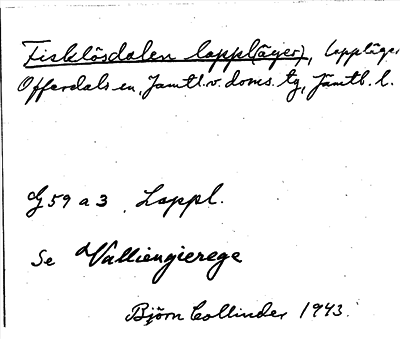 Fisklösdalen lappl(äger), Lappläge
Offerdals sn, Jämtl. v. doms. tg, Jämtl. l.
G 59 a 3 Lappl.
Se Valliengierege
Björn Collinder 1943.